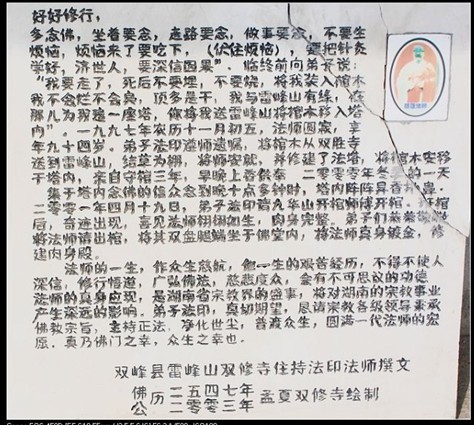 好好修行，
多念佛，坐着要念，走路要念，做事要念，不要生
烦恼，烦恼来了要吃下，（伏住烦恼），要把针灸
学好，济世人，要深信因果”。临终前向弟子说：
“我要走了，死后不要埋，不要烧，将我装入棺木
我不会烂不会臭，顶多是干，我与雷峰山有缘，在
那儿为我建一座塔，你将我送雷峰山将棺木移入塔
内”。一九九七年农历十一月初五，法师圆寂，享
年九十四岁。弟子法印遵师遗嘱，将棺木从双胜寺
送到雷峰山，结草为棚，将师安就，并修建了法塔，将棺木安移
于塔内，亲自守馆三年，早晚上香供奉 二零零零年冬 的一天
集于塔内念佛的信众念到晚十点多钟时，塔内阵阵异香扑鼻。
二零零一年四月十九日，弟子法印请九华山开棺师傅开棺，开棺
后，奇迹出现，喜见法师栩栩如生，肉身完整，弟子们
将法师请出棺，将其双盘腿端坐于佛堂内，将法师真身镀金，修
建肉身殿。
法师的一生，作众生慈航，他一生的艰苦经历，不得不使人
深信，修行悟道，广弘佛法，慈悲度众，会有不可思议的功德
法师的真身应现，是湖南省宗教界的盛事，将对湖南的宗教事业
产生深远的影响。弟子法印，真切期望，恩请宗教各级领导秉承
佛教宗旨，主持正法，净化世尘，普渡众生，圆满一代法师的宏
愿。真乃佛门之幸，众生之幸也。
双峰县雷峰山双修寺住持法印法师撰文
佛历二五四七年
公 二零零三年 孟夏双修寺绘制